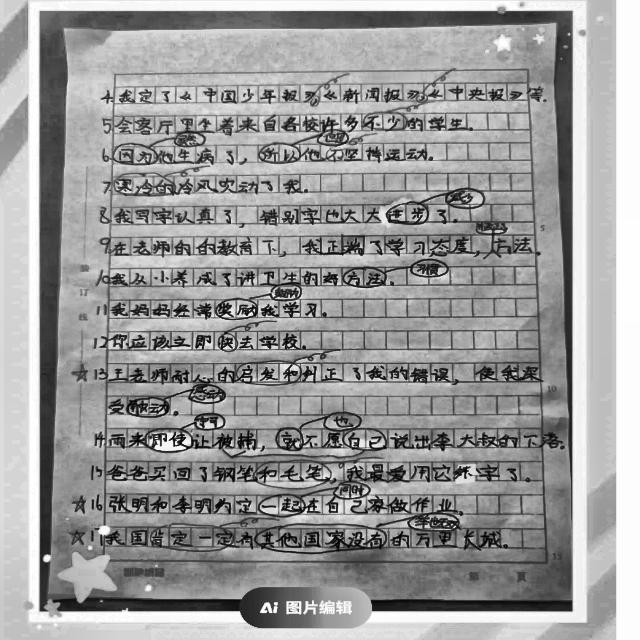 4.我定了《中国少年报》《新闻报》《中央报》等.
5会客厅里坐着来自各校许多不少的学生.
6.因为他生病了,所以他不坚持运动。
7.寒冷的冷风吹动了我。
8.我写字认真了,错别字也大大进步了.
减少
9在老师的的教育下,我正端了学习态度,方法.
5
10我从小养成了讲卫生的好方法.
习惯
11我妈妈经常奖励我学习.
12你应该立即快去学校.
☆13王老师耐心的启发和纠正了我的错误,使我深
10
受触动.
感动
14.雨来即使让被捕,就不愿自己说出李大叔的下落.
宁可
也
15爸爸买回了钢笔和毛笔,我最爱用它练字了.
☆16张明和李明约定一起在自己家做作业.
同时
☆17我国肯定一定为其他国家没有的万里长城.
15
第 页
装订线
Ai 图片编辑